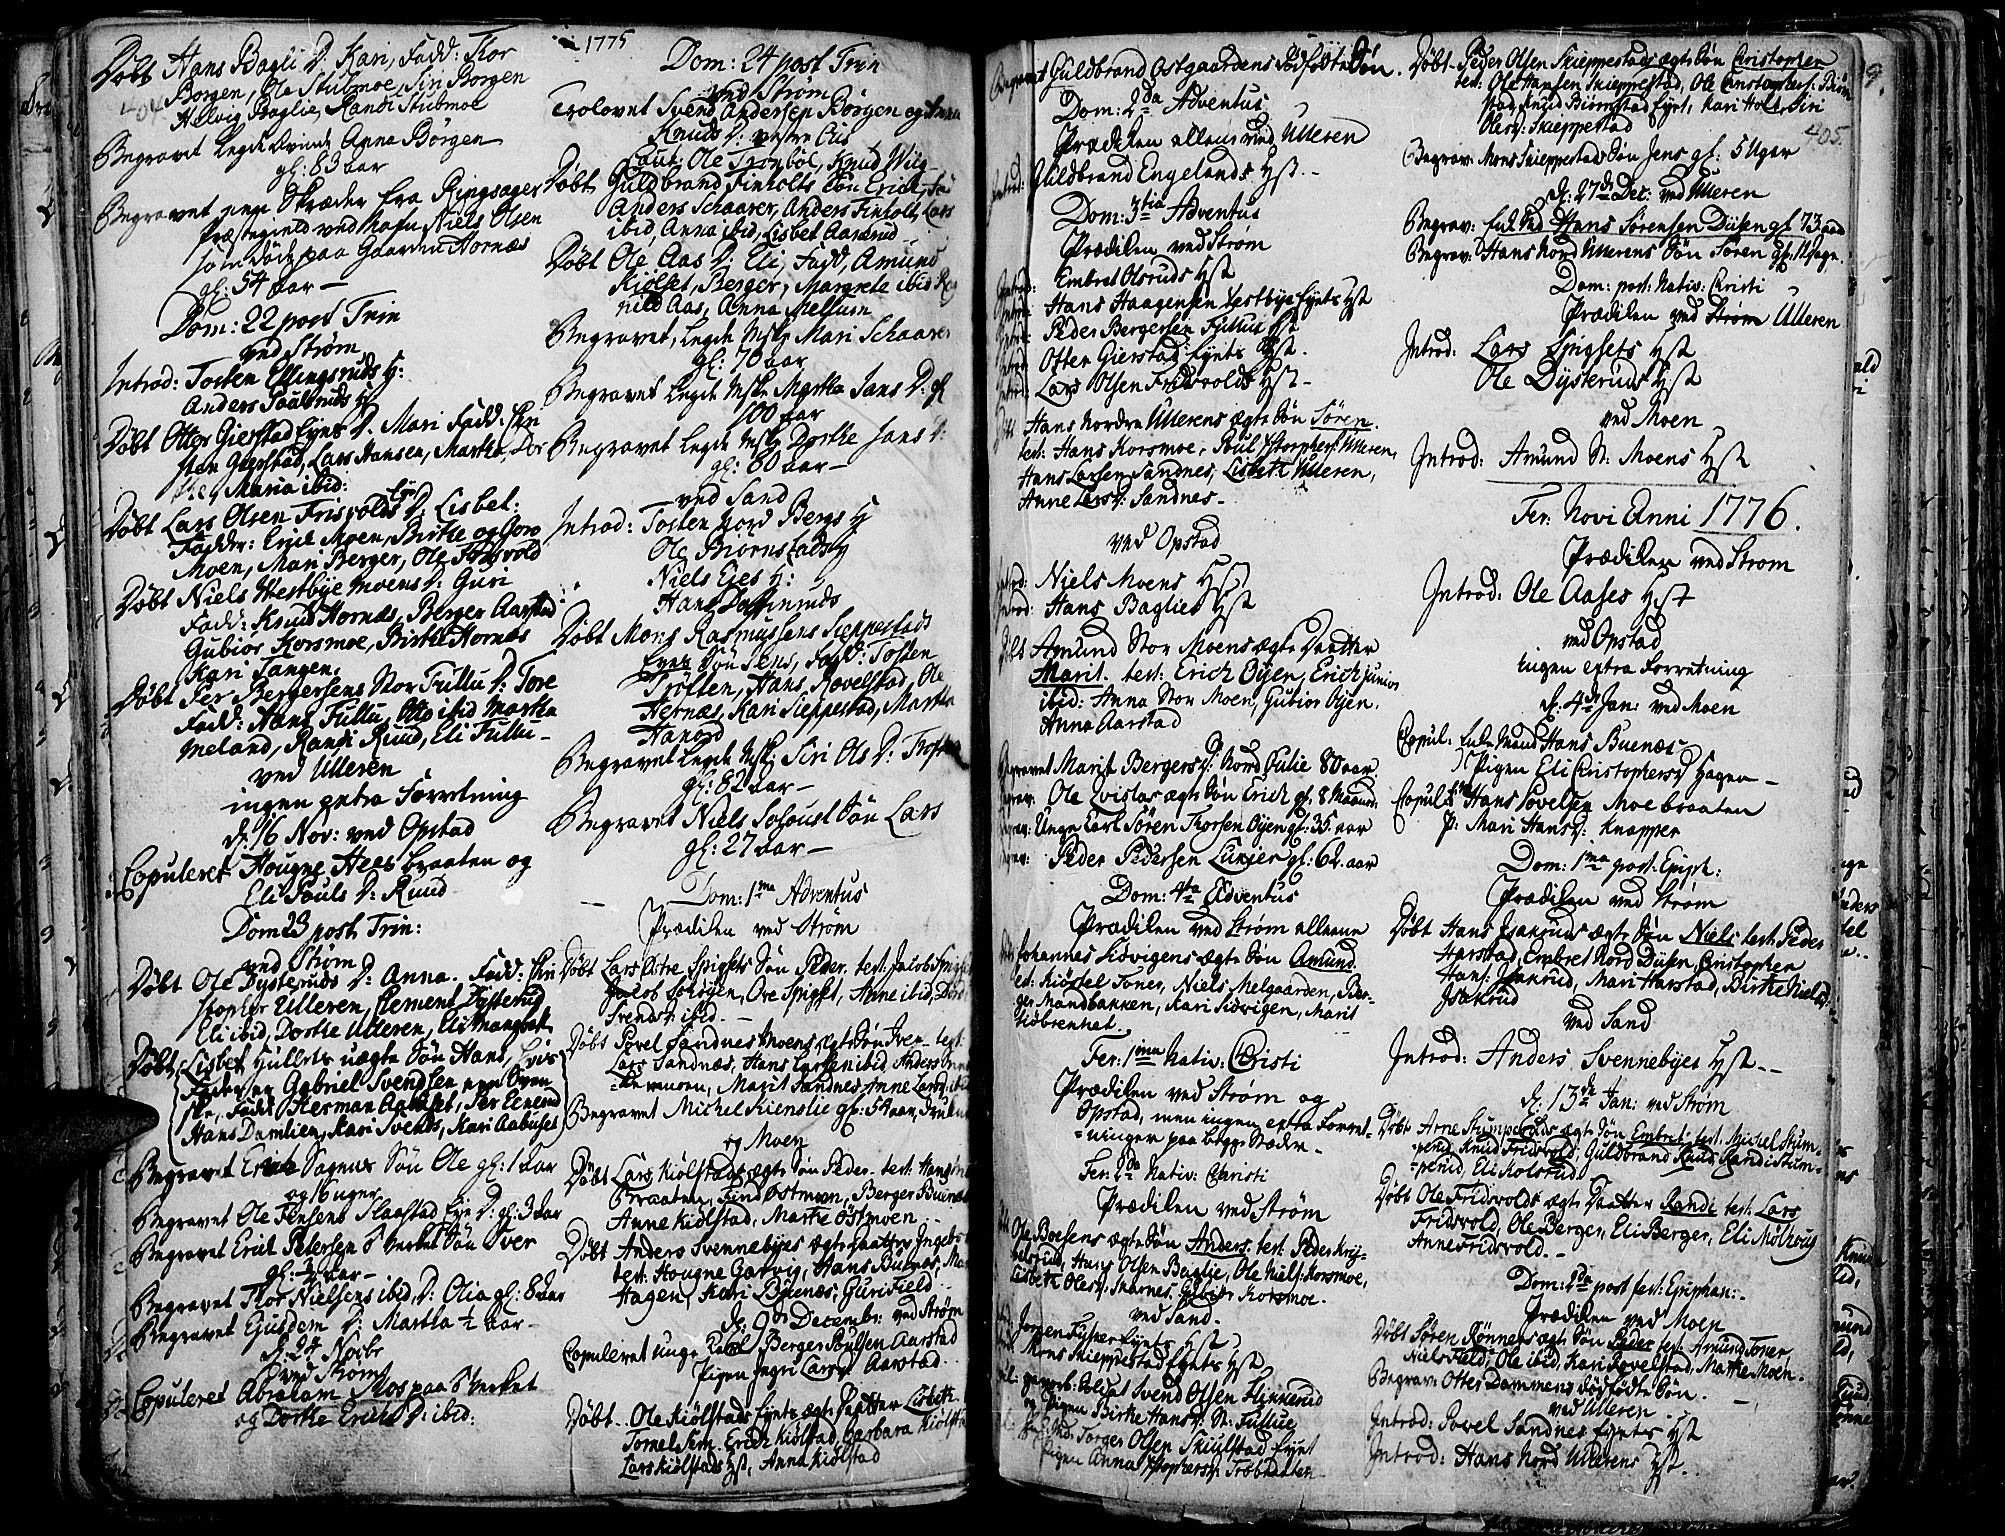 1775
404
Døbt Hans Bagli D. Kari, Fadd: Tor
Borgen, Ole Stubmoe, Siri Borgen
Helvig Baglie, Randi Stubmoe
Begravet Legde Qvinde Anna Börgen
gl: 83 aar
Begravet en Skræder fra Ringsager
Præstegield ved Nafn Niels Olsen
som døde paa Gaarden Hornæs
gl: 54 aar
Dom: 22 post Trin
ved Strøm
Introd: Tosten Ellingsruds H:
Anders Paulsruds H
Døbt Otter Gierstad Eyes D. Mari Fadd:
Gierstad, Lars Hansen, Martha,
Maria ibid:
Døbt Lars Olsen Frisvolds D: Lisbet:
Faddr: Erik Moen, Birthe og Goro
Moen, Mari Berger, Ole Frisvold
Døbt Niels Westbye Moens D: Guri
Fadd: Knud Hornæs, Berger Aarstad
Gubior Korsmoe, Birthe Hornæs
Kari Tangen.
Døbt Per Bergersens Stor Fullu D: Tore
Fadd: Hans Fullu, Otto ibid Martha
Meland, Randi Ruud, Eli Fullu
ved Ulleren
ingen extra Forretning
d. 16 Nov: ved Opstad
Copuleret Hougne Heesbraaten og
Eli Pouls D: Ruud
Dom 23 post Trin:
ved Strøm
Døbt Ole Dysteruds D: Anna. Fadd:
stopher Ulleren, Clement Dysterud
Eli ibid, Dorthe Ulleren, Eli Mangbek
Døbt Lisbet Hullets uægte Søn Hans,
Fader er Gabriel Svendsen
Fadd: Herman Aabuset, Per
Hans Damlien, Kari Svends, Kari Aabuset
Begravet Sagnes Søn Ole gl: 1 aar
og 16 uger
Begravet Ole Jensens Slaastad Eye D: gl: 3 aar
Begravet Erik Petersen S Verket Søn Iver
gl: ½ aar
Begravet Tlor Nielsens ibid, D: Olia gl: 8 aar
Begravet Ejusdem D: Martha ½ aar
d. 24 Novbr
ved Strøm
Copuleret Abraham Moe paa S Verket
og Dorthe Erichs D: ibid:
Dom: 24 post Trin
ved Strøm
Trolovet Svend Andersen Börgen og Anna
Knuds D: vestre
Caut: Ole Trønbøl, Knud
Døbt Guldbrand Finholts Søn Erich,
Anders Schaarer, Anders Finholt, Lars
ibid, Anna ibid, Lisbet Aamrud
Døbt Ole Aas D: Eli, Fadd, Amund
Kiölset, Berger, Margrete ibid
nild Aas, Anna Mellum
Begravet, Legde Mske Mari Schaarer
gl: 70 aar
Begravet Legde Mske Martha Jans D: gl
100 aar
Begravet Legde Mske Dorthe Jans D:
gl: 80 aar
ved Sand
Introd: Tosten Nord Bergs H
Ole Biørnstads H
Niels Ejes H:
Hans
Døbt Mons Rasmussens Sieppestads
Eyes Søn Jens, Fadd: Tosten
Tröften, Hans Rovelstad, Ole
Hernæs, Kari Sieppestad, Martha
Haneed
Begravet Legde Mske Siri Ols D: Trøften
gl: 82 aar
Begravet Niels Soloust Søn Lars
gl: 27 aar
Dom: 1ma Adventus
Prædiken ved Strøm
Døbt Lars Østre Spigsets Søn Peder. test: Jacob
Jacob, Ove Spigset, Anne ibid,
Svends: ibid.
Døbt Povel Sandnes Moens ægte Søn Iver test:
Lars Sandnæs, Hans Larsen ibid, Anders
moen, Marit Sandnes Anne Larsd.
Begravet Michel Kienslie gl: 54 aar,
og Moen
Døbt Lars Kiölstads ægte Søn Peder. test: Hans
Braaten, Find Østmoen, Berger Buenæs
Anne Kiölstad, Marthe Østmoen
Døbt Anders Svennebyes ægte Daatter Ingebor
test: Hougne Garvig, Hans Buenæs,
Hagen, Kari Buenæs, Guri Field
d. 9de Decembr: ved Strøm
Copuleret unge Karl Berger Poulsen Aarstad
Pigen Ingri Larsd. Aarstad
Døbt. Ole Kiölstads Eyets ægte Daatter Lisbeth
Tomel Sem, Erich Kiölstad, Barbara Kiölstad
Lars Kiölstads Hst, Anna Kiölstad
Begravet Guldbrand Ostgaardens dødfødte Søn.
Dom: 2da Adventus
Prædiken allene ved Ulleren
Introd: Guldbrand Engelands Hst.
Dom: 3tia Adventus
Prædiken ved Strøm
Introd: Embret Olsruds Hst
Hans Haagensen Vestbye Eyets Hst
Peder Bergersen Fullus Hst
Otter Gierstad Eyets Hst.
Lars Olsen Fridsvolds Hst
Døbt Hans Nordre Ullerens ægte Søn Sören.
test: Hans Korsmoe, Poul Ulleren,
Hans Larsen Sandnes, Lisbeth Ulleren,
Anne Larsd: Sandnes
ved Opstad
Introd: Niels Moens Hst
Introd: Hans Baglies Hst
Døbt Amund Stor Moens ægte Daatter
Marit. test: Erich Øyen, Erich junior
ibid: Anna Stor Moen, Gubior Øyen,
Anna Aarstad
Begravet Marit Bergersd: Nord Fulie 80 aar
Begrav: Ole Qvistas ægte Søn Erich gl: 8 Maaneder
Begrav: Unge Carl Sören Thorsen Øyen gl: 35 aar
Begrav: Peder Pedersen Lunjer gl: 62 aar
Dom: 4ta Adventus
Prædiken ved Strøm allene
Johannes Lidvigens ægte Søn Amund.
test: Kiöstel Toner, Niels Melgaarden, Per
Mandbakken, Kari Lidvigen, Marit
Fer: 1ma Nativ: Christi
Prædiken ved Strøm og
Opstad, men ingen extra Forret-
ninger paa begge Stæder.
Fer: 2da Nativ: Christi
Prædiken ved Strøm
Ole Boesens ægte Søn Anders. test: Peder
Hans Olsen Baglie, Ole Niels: Korsmoe,
Lisbeth Olesd: Skarnes, Gubior Korsmoe.
ved Sand
Jorgen Eyets Hst
Mons Skieppestad Eyets Hst
Soldat Svend Olsen Flinnerud
og Pigen Birthe Hansd: St: Fullue
Torger Olsen Skiulstad Eyet
Pigen Anna Tobraaten
Døbt Peder Olsen Skieppestads ægte Søn Christopher
test: Ole Hansen Skieppestad, Ole Christophers: Biørn
stad, Knud Biørnstad Eyet, Kari Holt, Siri
Olesd: Skieppestad
405.
Begrav: Mons Skieppestads Søn Jens gl: 5 Uger
d. 27de Dec: ved Ulleren
Begrav: Hans Sörensen Düsen gl 73 aar
Begrav: Hans Nord Ullerens Søn Sören gl: 11 Dage
Dom: post: Nativ: Christi
Prædiken ved Strøm Ulleren
Introd: Lars Spigsets Hst
Ole Dysteruds Hst
ved Moen
Introd: Amund St: Moens Hst
Fer: Novi Anni 1776.
Prædiken ved Strøm
Introd: Ole Aases Hst
ved Opstad
ingen extra Forretning
d. 4de Jan: ved Moen
Copul: Enke Mand Hans Buenæs
Pigen Eli Christophersd Hagen
Copul: Hans Povelsen Moebraaten
P: Mari Hansd: Knapper
Dom: 1ma post: Epiph:
Prædiken ved Strøm
Døbt Hans Isakruds ægte Søn Niels test: Peder
Harstad, Embret Nord Düsen, Christopher
Hans: Isakrud, Mari Harstad, Birthe Nielsd:
Isakrud
ved Sand
Introd: Anders Svennebyes Hst
d. 13de Jan: ved Strøm
Døbt Arne ægte Søn Embret: test: Michel Stum-
perud, Knud Fridsvold, Guldbrand Ruud, Randi Stum-
perud, Eli Kolsrud
Døbt Ole Fridsvolds ægte Daatter Randi test: Lars
Fridsvold, Ole Berger, Eli Berger, Eli Mölhaug
Anne Fridsvold.
Dom: 2da post fest: Epiphan:
Prædiken ved Moen
Døbt Søren Rönners ægte Søn Peder test: Amund Toner
Niels Field, Ole ibid, Kari Rovelstad, Marthe Moen.
Begrav: Otter Dammens dødfødte Søn.
ved Ulleren
Introd: Povel Sandnes Eyets Hst
Introd: Hans Nord Ullerens Hst.